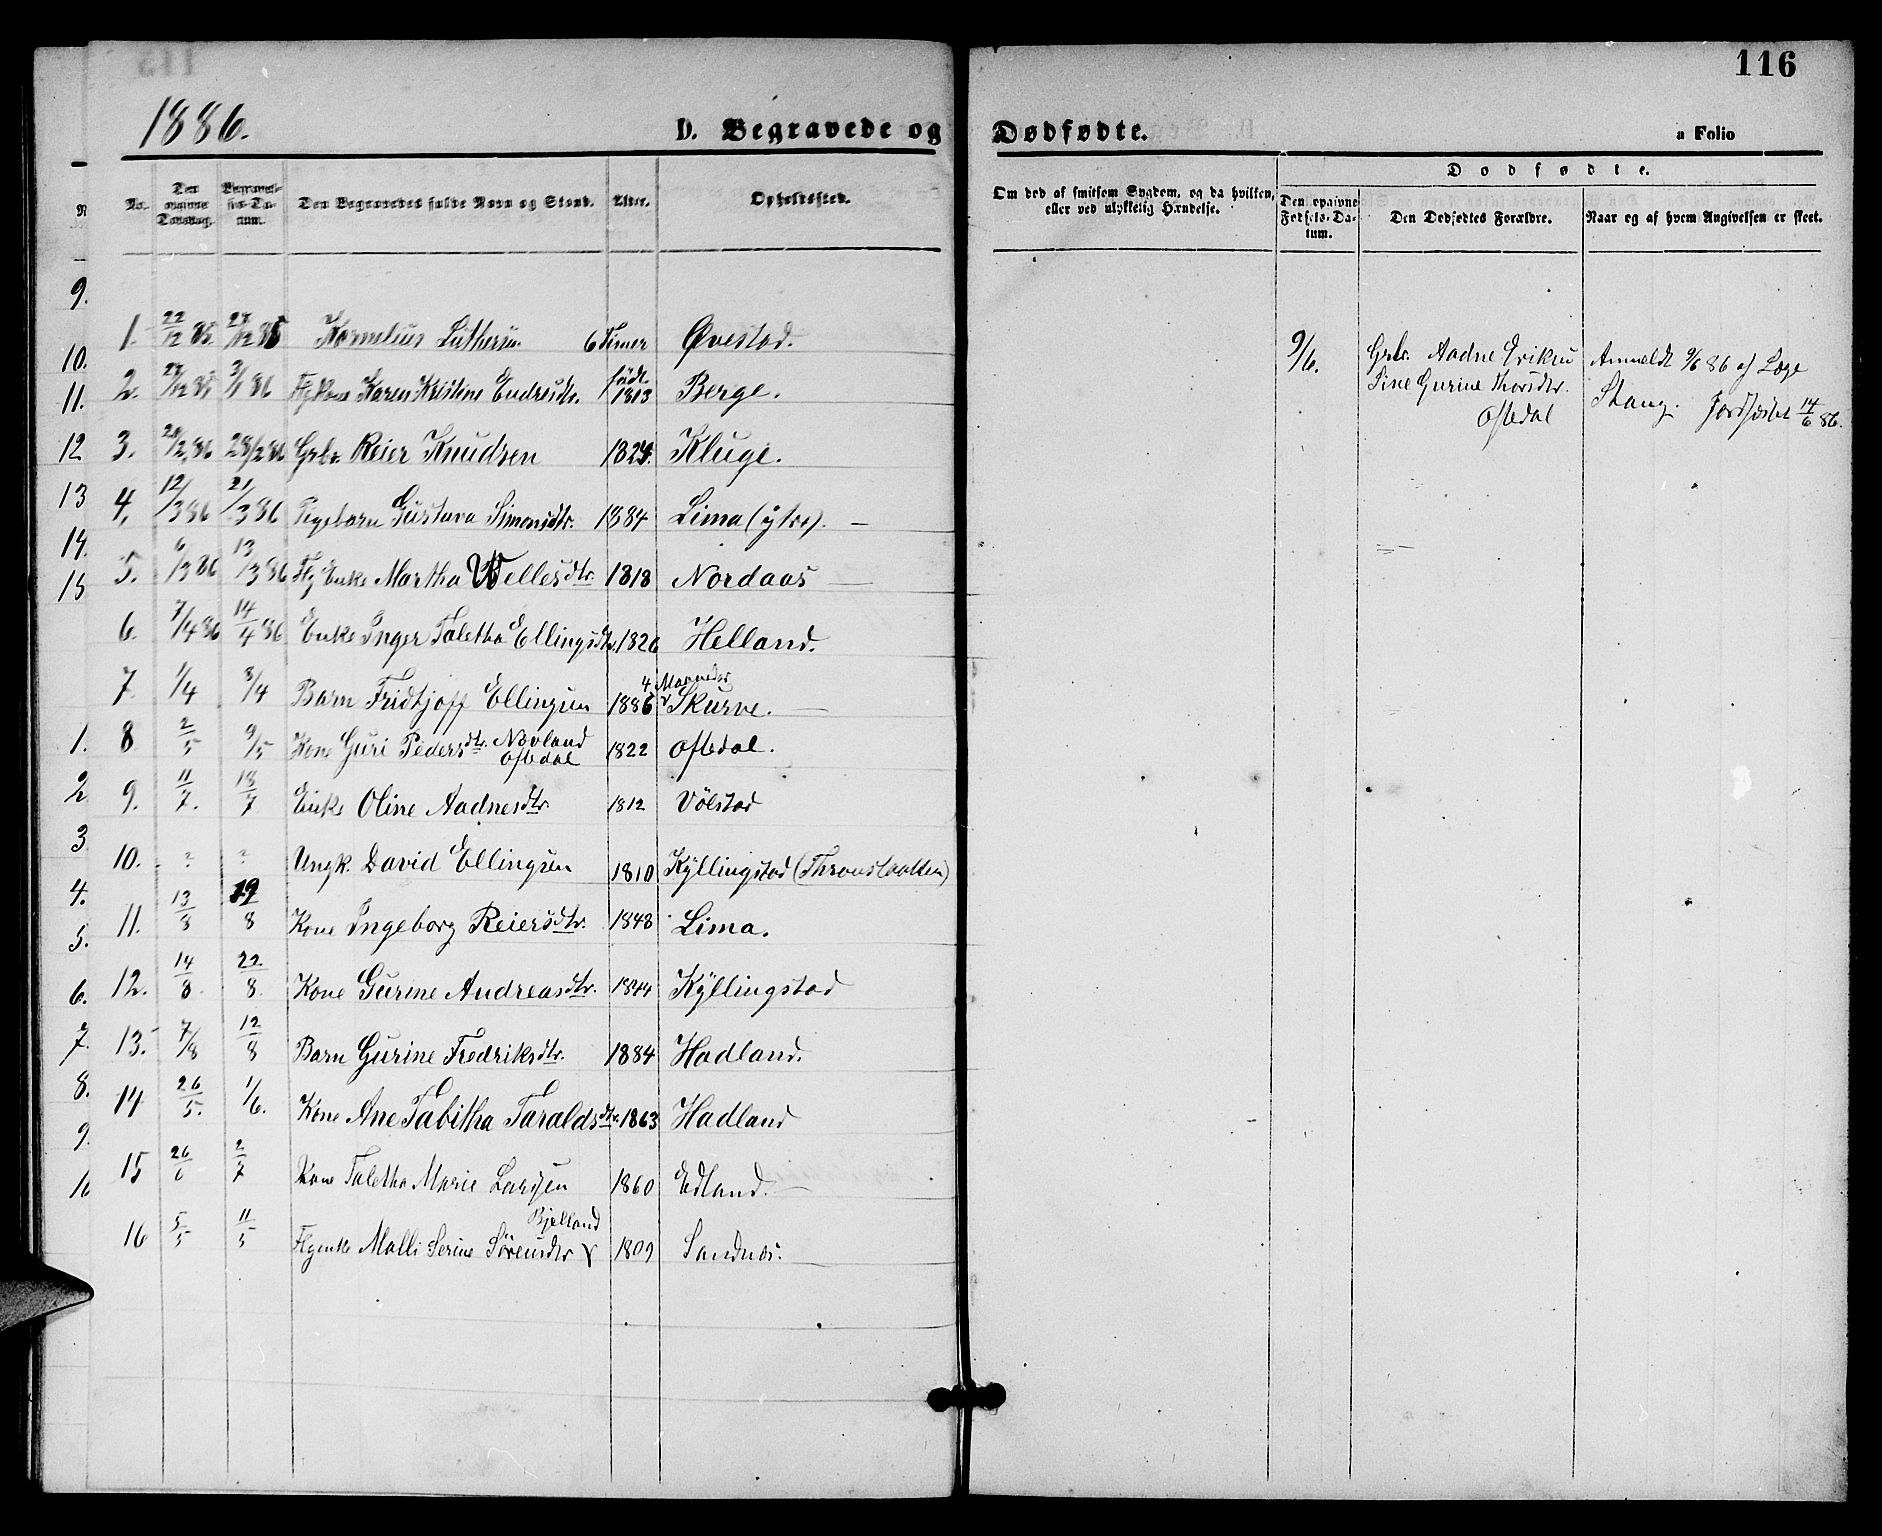 116
1886.
D. Begravede og Dødfødte.
a Folio
No.
Den opgivne Dødsdag.
Begravelses-Datum.
Den Begravedes fulde Navn og Stand.
Alder.
Opholdssted.
Om død af smitsom Sygdom, og da hvilken, eller ved ulykkelig Hændelse.
Dødfødte.
Den opgivne Fødsels-Datum.
Den Dødfødtes Forældre.
Naar og af hvem Angivelsen er skeet.
1. 22/12 85 27/12 85 Kornelius Luthersen 6 Timer Øvestad.
2. 27/12 85 3/1 86 Fkone Karen Kristine Endresdtr. født 1813 Berge.
3. 20/2 86 28/2 86 Gbr. Reier Knudsen 1824. Kluge.
4. 12/3 86 21/3 86 Pigebarn Gustava Simonsdtr. 1884 Lima (ytre). —
5. 6/3 86 13/3 86 Flg Enke Martha Wellesdtr. 1818 Nordaas —
6. 7/4 86 14/4 86 Enke Inger Taletha Ellingsdtr. 1826 Helland.
7. 1/4 8/4 Barn Fridtjoff Ellingsen 1886 4 Maaneder Skurve. —
8 2/5 9/5 Kone Guri Pedersdtr. Novland Oftedal 1822 Oftedal.
9. 11/7. 18/7 Enke Oline Aadnesdtr. 1812 Völstad
10. ? ? Ungk. David Ellingsen 1810 Kÿllingstad (Thronslaatten)
11. 13/8 19/8 Kone Ingeborg Reiersdtr. 1848 Lima.
12. 14/8. 22/8. Kone Gurine Andreasdtr. 1844 Kÿllingstad
13. 7/8 12/8 Barn Gurine Fredriksdtr. 1884 Hadland.
14 26/5. 1/6. Kone Ane Tabitha Taraldsdtr. 1863 Hadland
15 26/6 2/7 Kone Taletha Marie Larsen 1860 Edland. —
16 5/5 11/5 Flgenke Malli Serine Sörensdtr Bjelland 1809 Sandnæs. —
9/6. Gbr. Aadne Eriksen
Sine Gurine Thorsdtr.
Oftedal
Anmeldt 9/6 86 af Læge
Stang. Jordfæstet 14/6 86.
9.
10.
11.
12
13
14.
15
1.
2
3
4.
5.
6.
7.
8.
9.